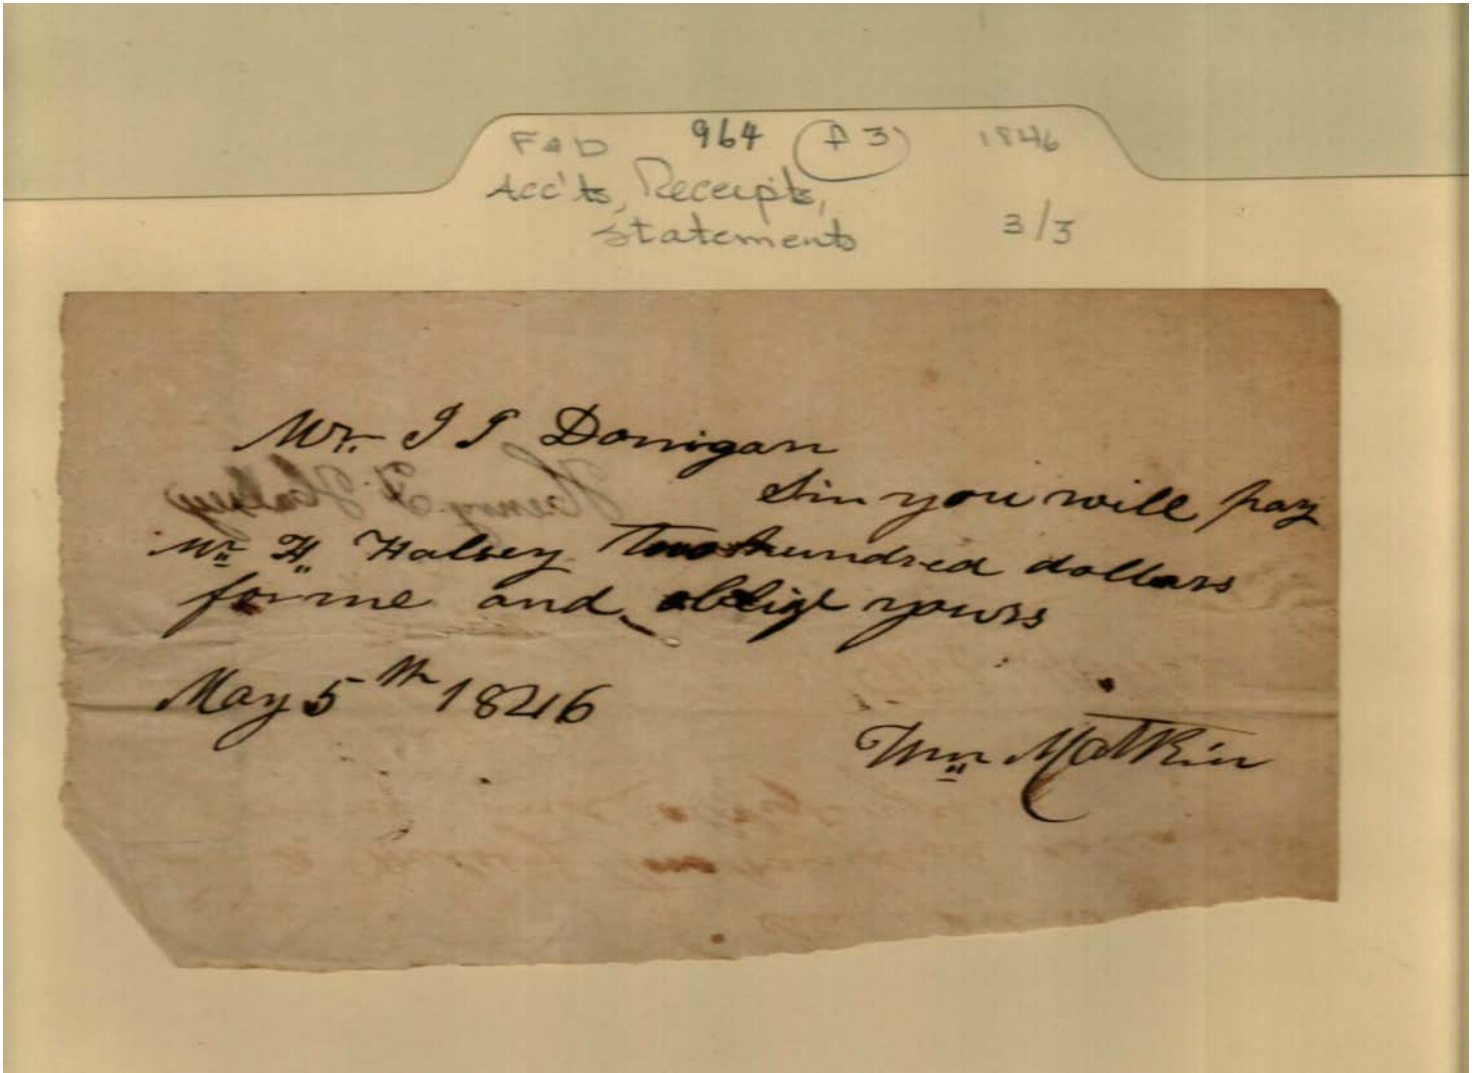 F&D 964 (f 3) 1846
Acc'ts, Receipts,
Statements 3/3
Mr. J J Donigan
Sir you will pay
Mr H Halsey Two hundred dollars
for me and oblige yours
May 5th 1846
Wm Matkin
Henry H. Halsey